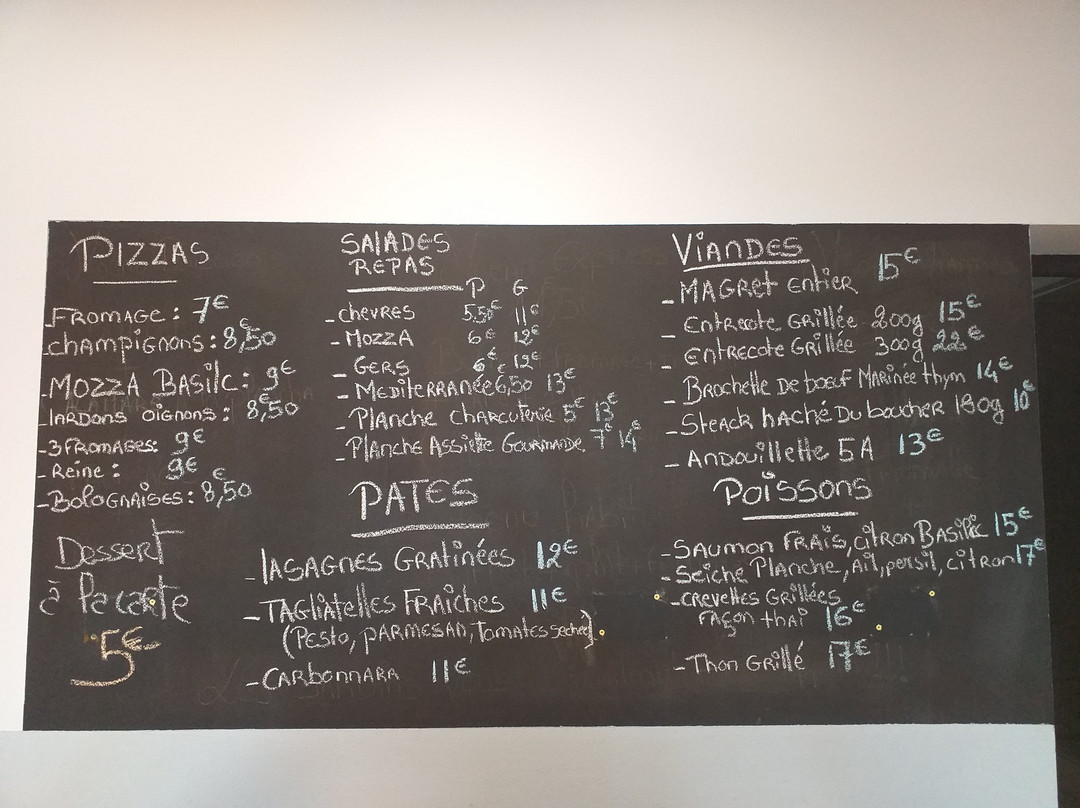 PIZZAS
-FROMAGE : 7€
-champignons : 8,50€
-MOZZA BASILC : 9€
-lARDONS OIGNONS : 8,50€
-3FROMAGES: 9€
-Reine : 9€
-BoloGnAISES : 8,50€
Dessert
à la carte
5€
SAlADES
REPAS
P G
-chevres 5,50€ 11€
-MOZZA 6€ 12€
-GERS 6€ 12€
-MEDITERRANée 6,50€ 13€
-Planche charcuterie 5€ 13€
-Planche Assiette Gourmande 7€ 14€
PATES
-lASAGNES GRATinées 12€
-TAGliAtelles FRAÎCHES 11€
(Pesto, PARMESAN, Tomates sechée)
-CARbonnARA 11€
VIANDES
-MAGRet Entier 15€
-Entrecote GRILLée 200g 15€
-Entrecote GRILLée 300g 22€
-Brochette De bœuf MARinée thym 14€
-Steack haché Du boucher 180g 10€
-ANDOUillette 5A 13€
POISSONS
-SAUMON FRAIS, citron BAsilic 15€
-Seiche Planche, Ail, persil, citron 17€
-crevettes Grillées
FAÇON thAÏ 16€
-Thon GRillé 17€